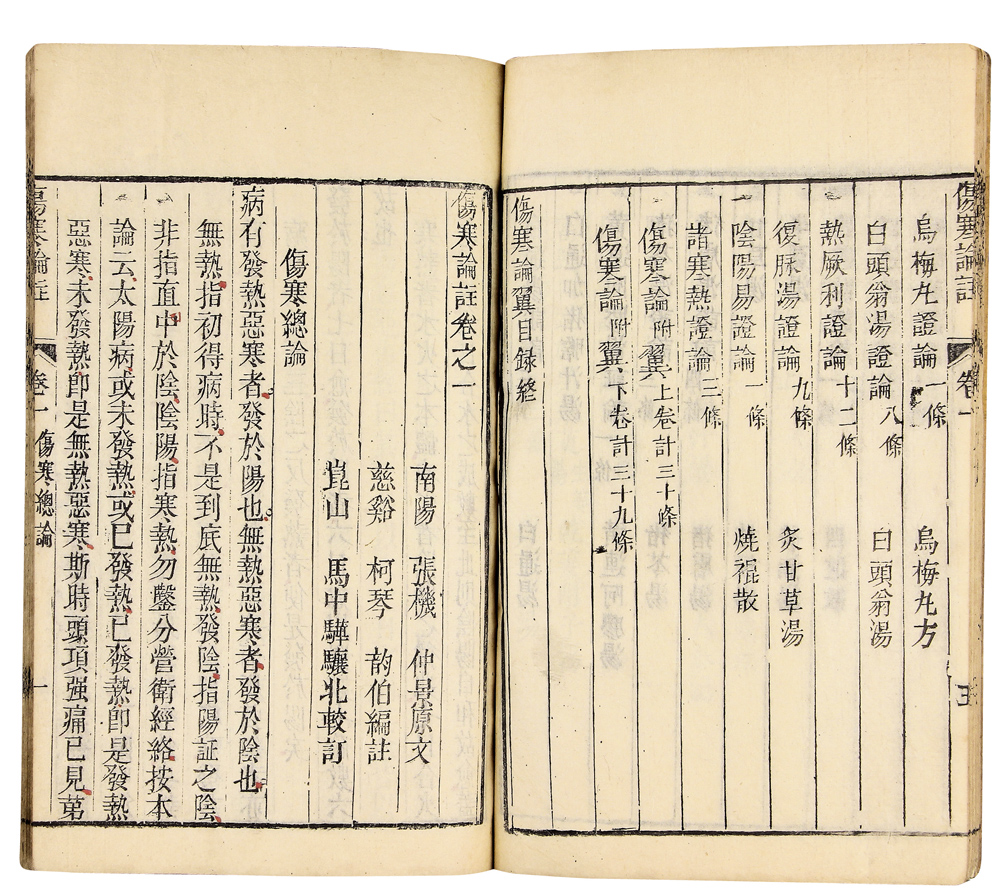 傷寒論註 卷一
烏梅丸證論 一條 烏梅丸方
白頭翁湯證論 八條 白頭翁湯
熱厥利證論 十二條
復脈湯證論 九條 炙甘草湯
陰陽易證論 一條 燒裩散
諸寒熱證論 三條
傷寒論附翼 上卷計三十條
傷寒論附翼 下卷計三十九條
傷寒論翼目録終
傷寒論註卷之一
南陽 張機 仲景原文
慈谿 柯琴 韵伯編註
崑山 馬中驊驤北較訂
傷寒總論
病有發熱惡寒者發於陽也無熱惡寒者發於陰也
無熱指初得病時不是到底無熱發陰指陽証之陰
非指直中於陰陰陽指寒熱勿鑿分營衛經絡按本
論云太陽病或未發熱或已發熱已發熱即是發熱
惡寒未發熱即是無熱惡寒斯時頭項强痛已見苐
傷寒論註 卷一 傷寒總論 一